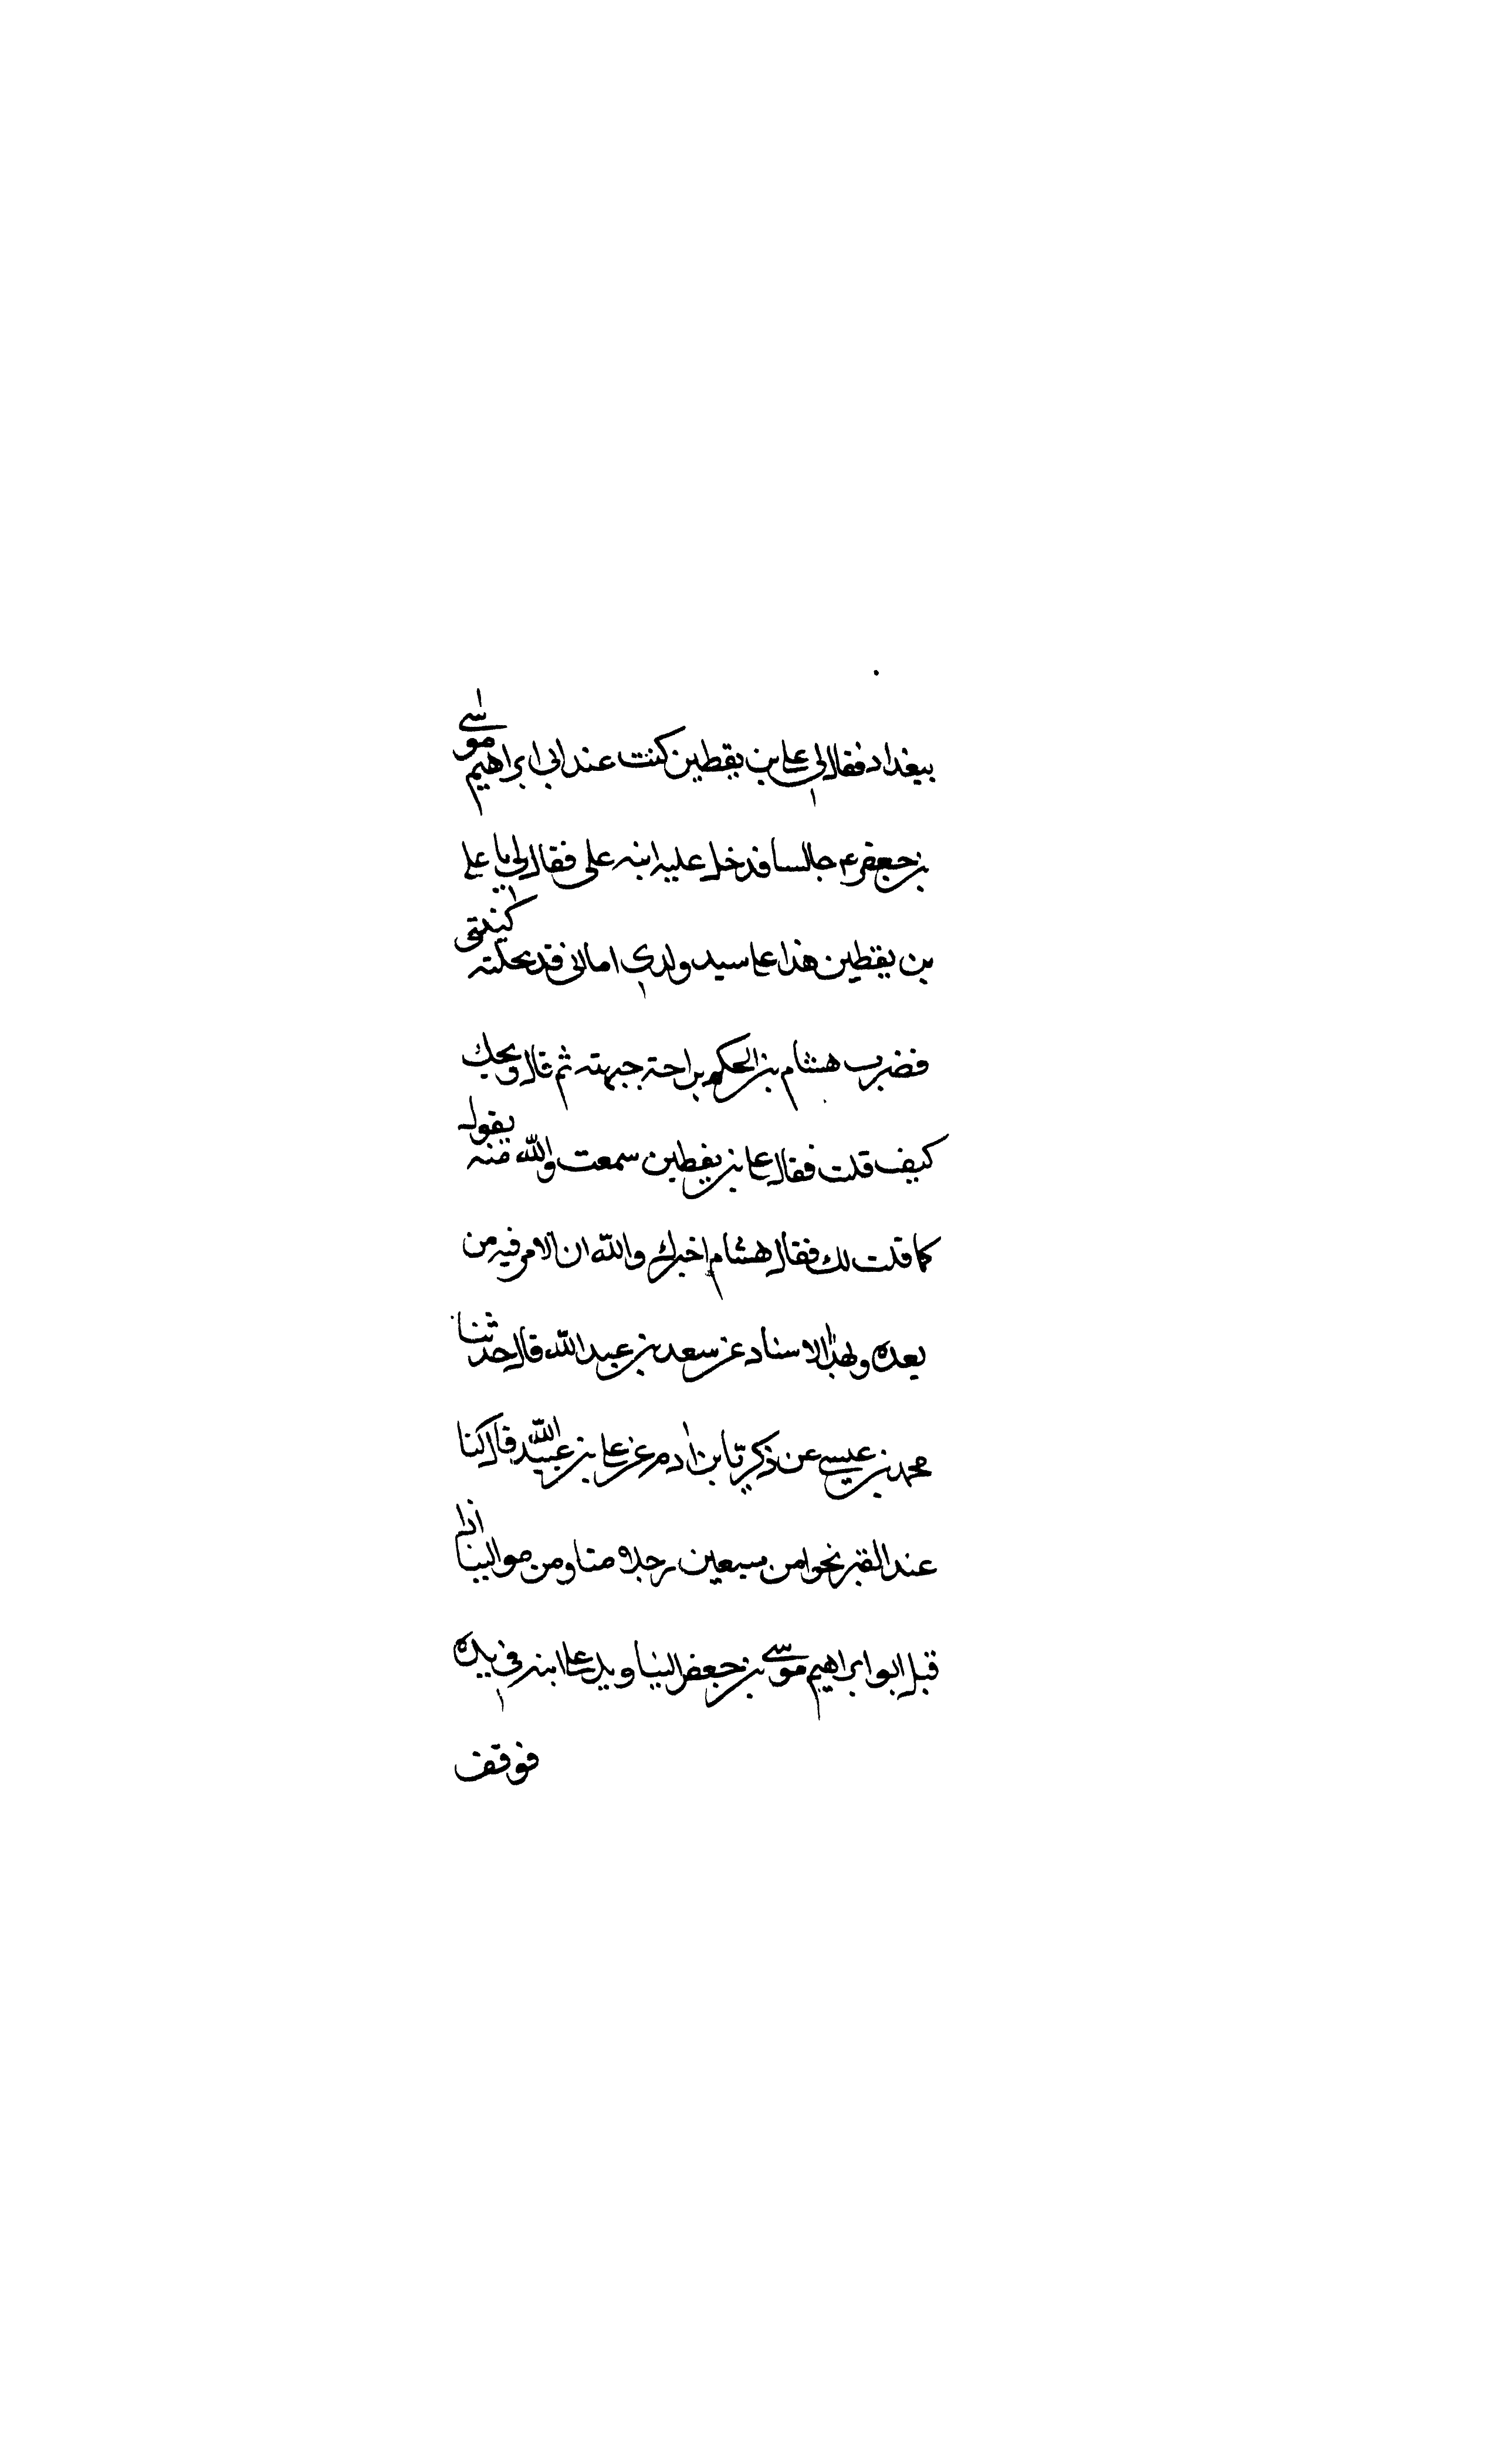 ببغداد فقال لي علي بن يقطين كنت عند ابي ابراهيم موسى
بن جعفر ع م جالسا فدخل عليه ابنه علي فقال لي يا علي
بن يقطين هذا علي سيد ولدي اما اني قد نحلته كنيتي
فضرب هشام بن الحكم براحته جبهته ثم قال ويحك
كيف قلت فقال علي بن يقطين سمعت والله منه يقول
كما قلت لك فقال هشام اخبرك والله ان الامر فيه من
بعده وبهذا الاسناد عن سعد بن عبد الله قال حدثنا
محمد بن عيسى عن زكريا بن ادم عن علي بن عبد الله قال كنا
عند القبر نحوا من سبعين رجلا منا ومن موالينا اذ
قبل ابو ابراهيم موسى بن جعفر الينا ويد علي ابنه في يده
فوقف